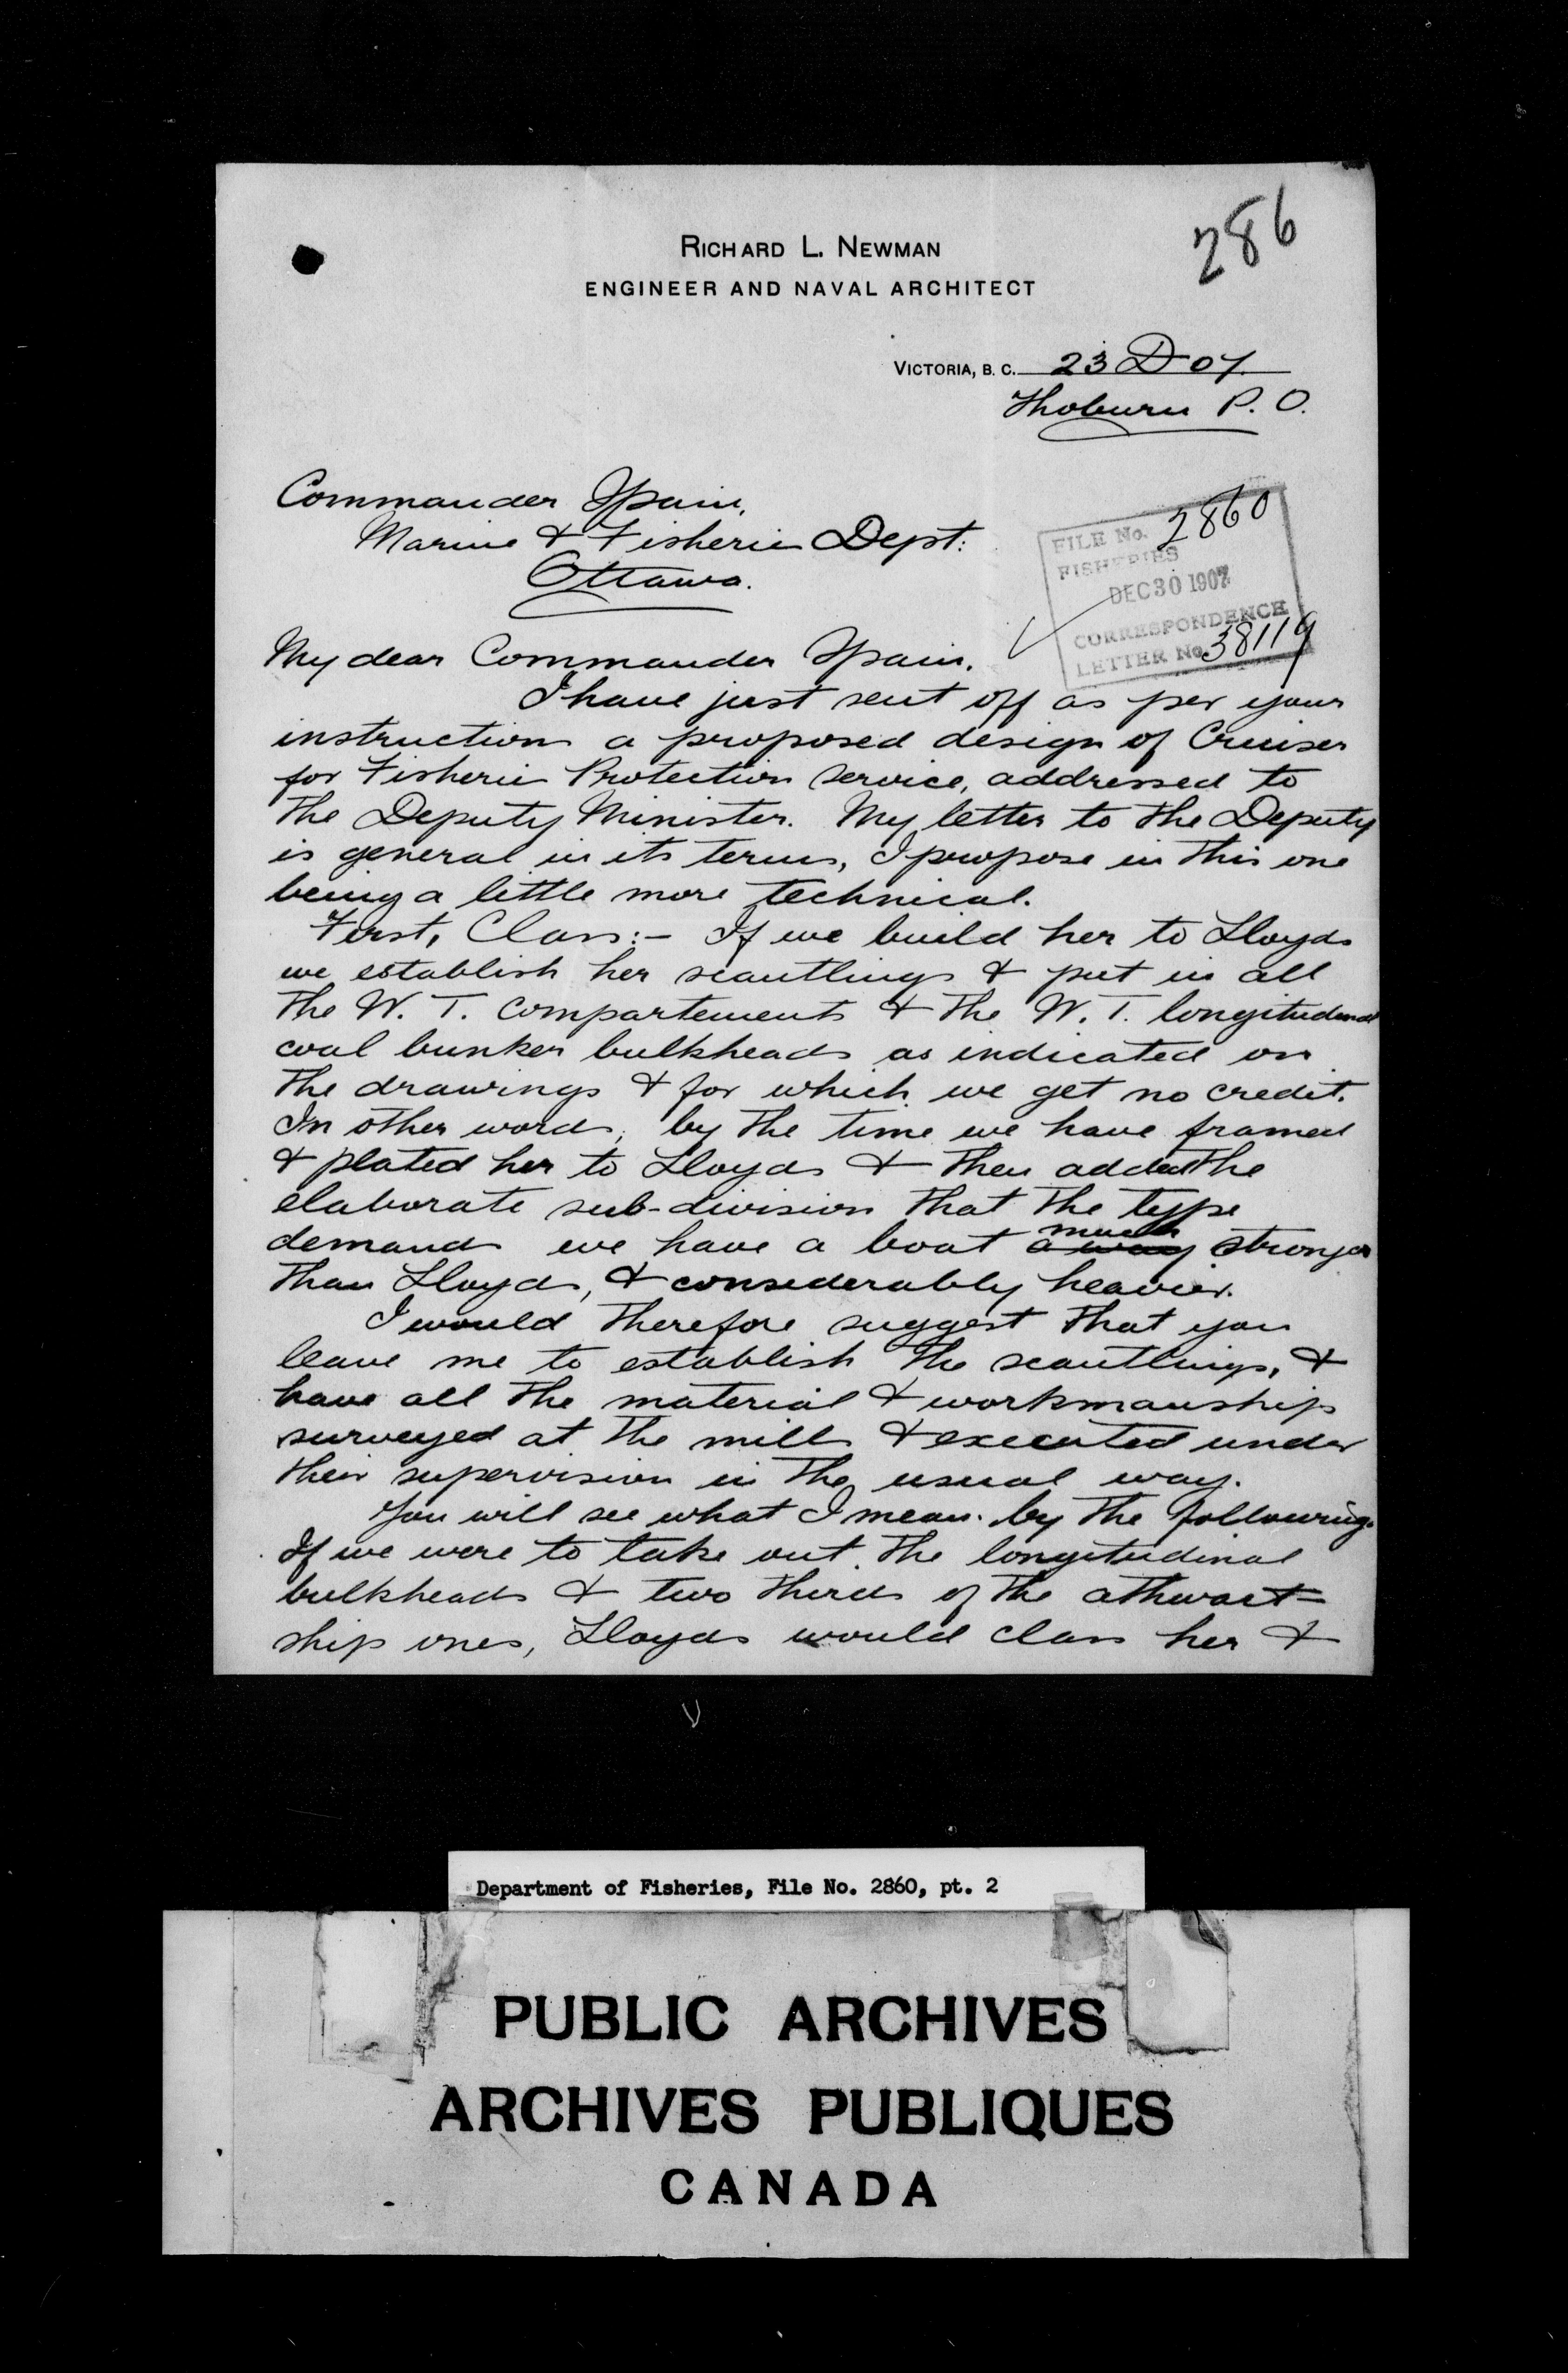 286
RICHARD L. NEWMAN
ENGINEER AND NAVAL ARCHITECT
VICTORIA, B. C. 23 D 07.
Thoburn P. O.
Commander Spain,
Marine & Fisheries Dept:
Ottawa.
FILE No. 2860
FISHERIES
DEC 30 1907
CORRESPONDENCE
LETTER No 38119
My dear Commander Spain.
I have just sent off as per your
instructions a proposed design of Cruiser
for Fisheries Protection Service, addressed to
the Deputy Minister. My letter to the Deputy
is general in its terms, I propose in this one
being a little more technical.
First, Class:- If we build her to Lloyds
we establish her scantlings & put in all
the W. T. compartements & the W. T. longitudinal
coal bunker bulkheads as indicated on
the drawings & for which we get no credit.
In other words, by the time we have framed
& plated her to Lloyds & then added the
elaborate sub-division that the type
demands we have a boat away much stronger
than Lloyds, & considerably heavier.
I would therefore suggest that you
leave me to establish the scantlings, &
have all the material & workmanship
surveyed at the mills & executed under
their supervision in the usual way.
You will see what I mean by the following.
If we were to take out the longitudinal
bulkheads & two thirds of the athwart=
ship ones, Lloyds would class her &
Department of Fisheries, File No. 2860, pt. 2
PUBLIC ARCHIVES
ARCHIVES PUBLIQUES
CANADA